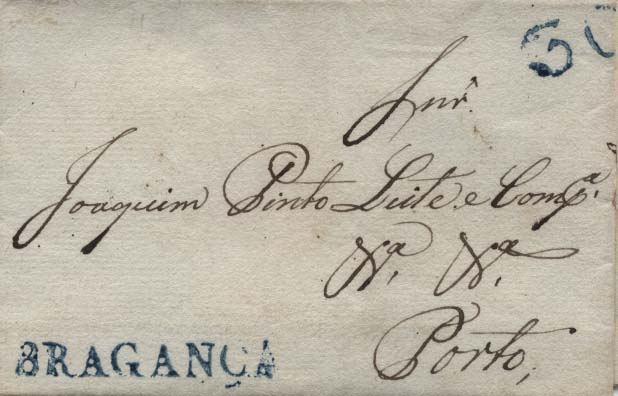 50
Snr.
Joaquim Pinto Leite e Compª.
Nª. Nª.
Porto,
BRAGANÇA